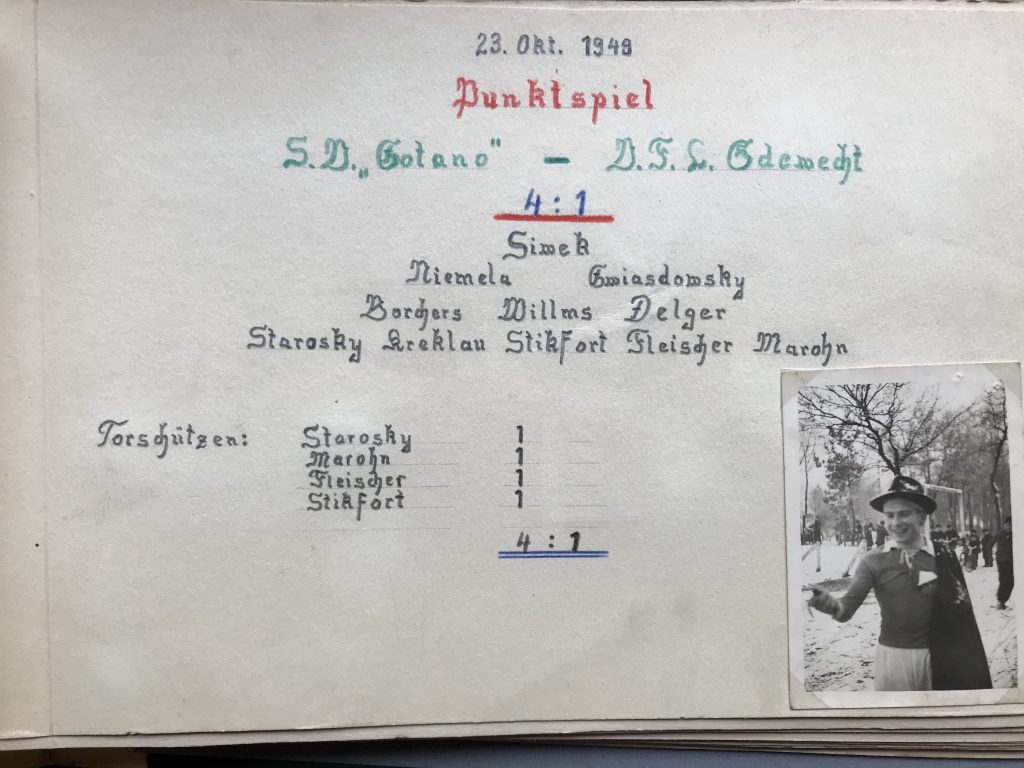 23. Okt. 1949
Punktspiel
S.V. „Gotano" – V.F.L. Edewecht
4 : 1
Simek
Niemela Gwiasdowsky
Borchers Willms Delger
Starosky Kreklau Stikfort Fleischer Marohn
Torschützen: Starosky 1
Marohn 1
Fleischer 1
Stikfort 1
4 : 1